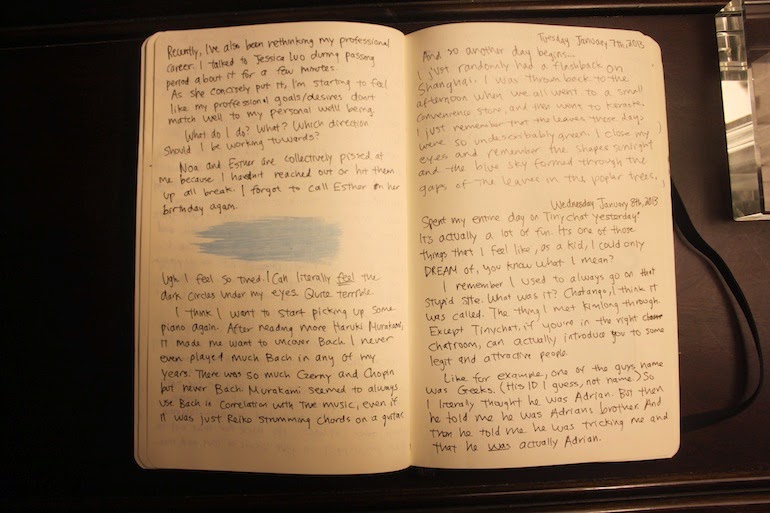 Recently, I've also been rethinking my professional
career. I talked to Jessica Luo during passing
period about it for a few minutes.
As she concisely put it, I'm starting to feel
like my professional goals/desires don't
match well to my personal well being.
What do I do? What? Which direction
should I be working towards?
Noa and Esther are collectively pissed at
me because I haven't reached out or hit them
up all break. I forgot to call Esther on her
birthday again.
Ugh I feel so tired. I can literally feel the
dark circles under my eyes. Quite terrible.
I think I want to start picking up some
piano again. After reading more Haruki Murakami,
it made me want to uncover Bach. I never
even played much Bach in any of my
years. There was so much Czerny and Chopin
but never Bach. Murakami seemed to always
use Bach in correlation with the music, even if
it was just Reiko strumming chords on a guitar.
Tuesday January 7th, 2013
And so another day begins...
I just randomly had a flashback on
Shanghai. I was thrown back to the
afternoon when we all went to a small
convenience store, and then went to karaoke.
I just remember that the leaves those days
were so undescribably green. I close my
eyes and remember the shapes sunlight
and the blue sky formed through the
gaps of the leaves in the poplar trees.
Wednesday January 8th, 2013
Spent my entire day on Tinychat yesterday!
It's actually a lot of fun. It's one of those
things that I feel like, as a kid, I could only
DREAM of, you know what I mean?
I remember I used to always go on that
stupid site. What was it? Chatango, I think it
was called. The thing I met Kimlong through.
Except Tinychat, if you're in the right
chatroom, can actually introduce you to some
legit and attractive people.
Like for example, one of the guys name
was Greeks. (His ID I guess, not name.) So
I literally thought he was Adrian. But then
he told me he was Adrians brother. And
then he told me he was tricking me and
that he was actually Adrian.